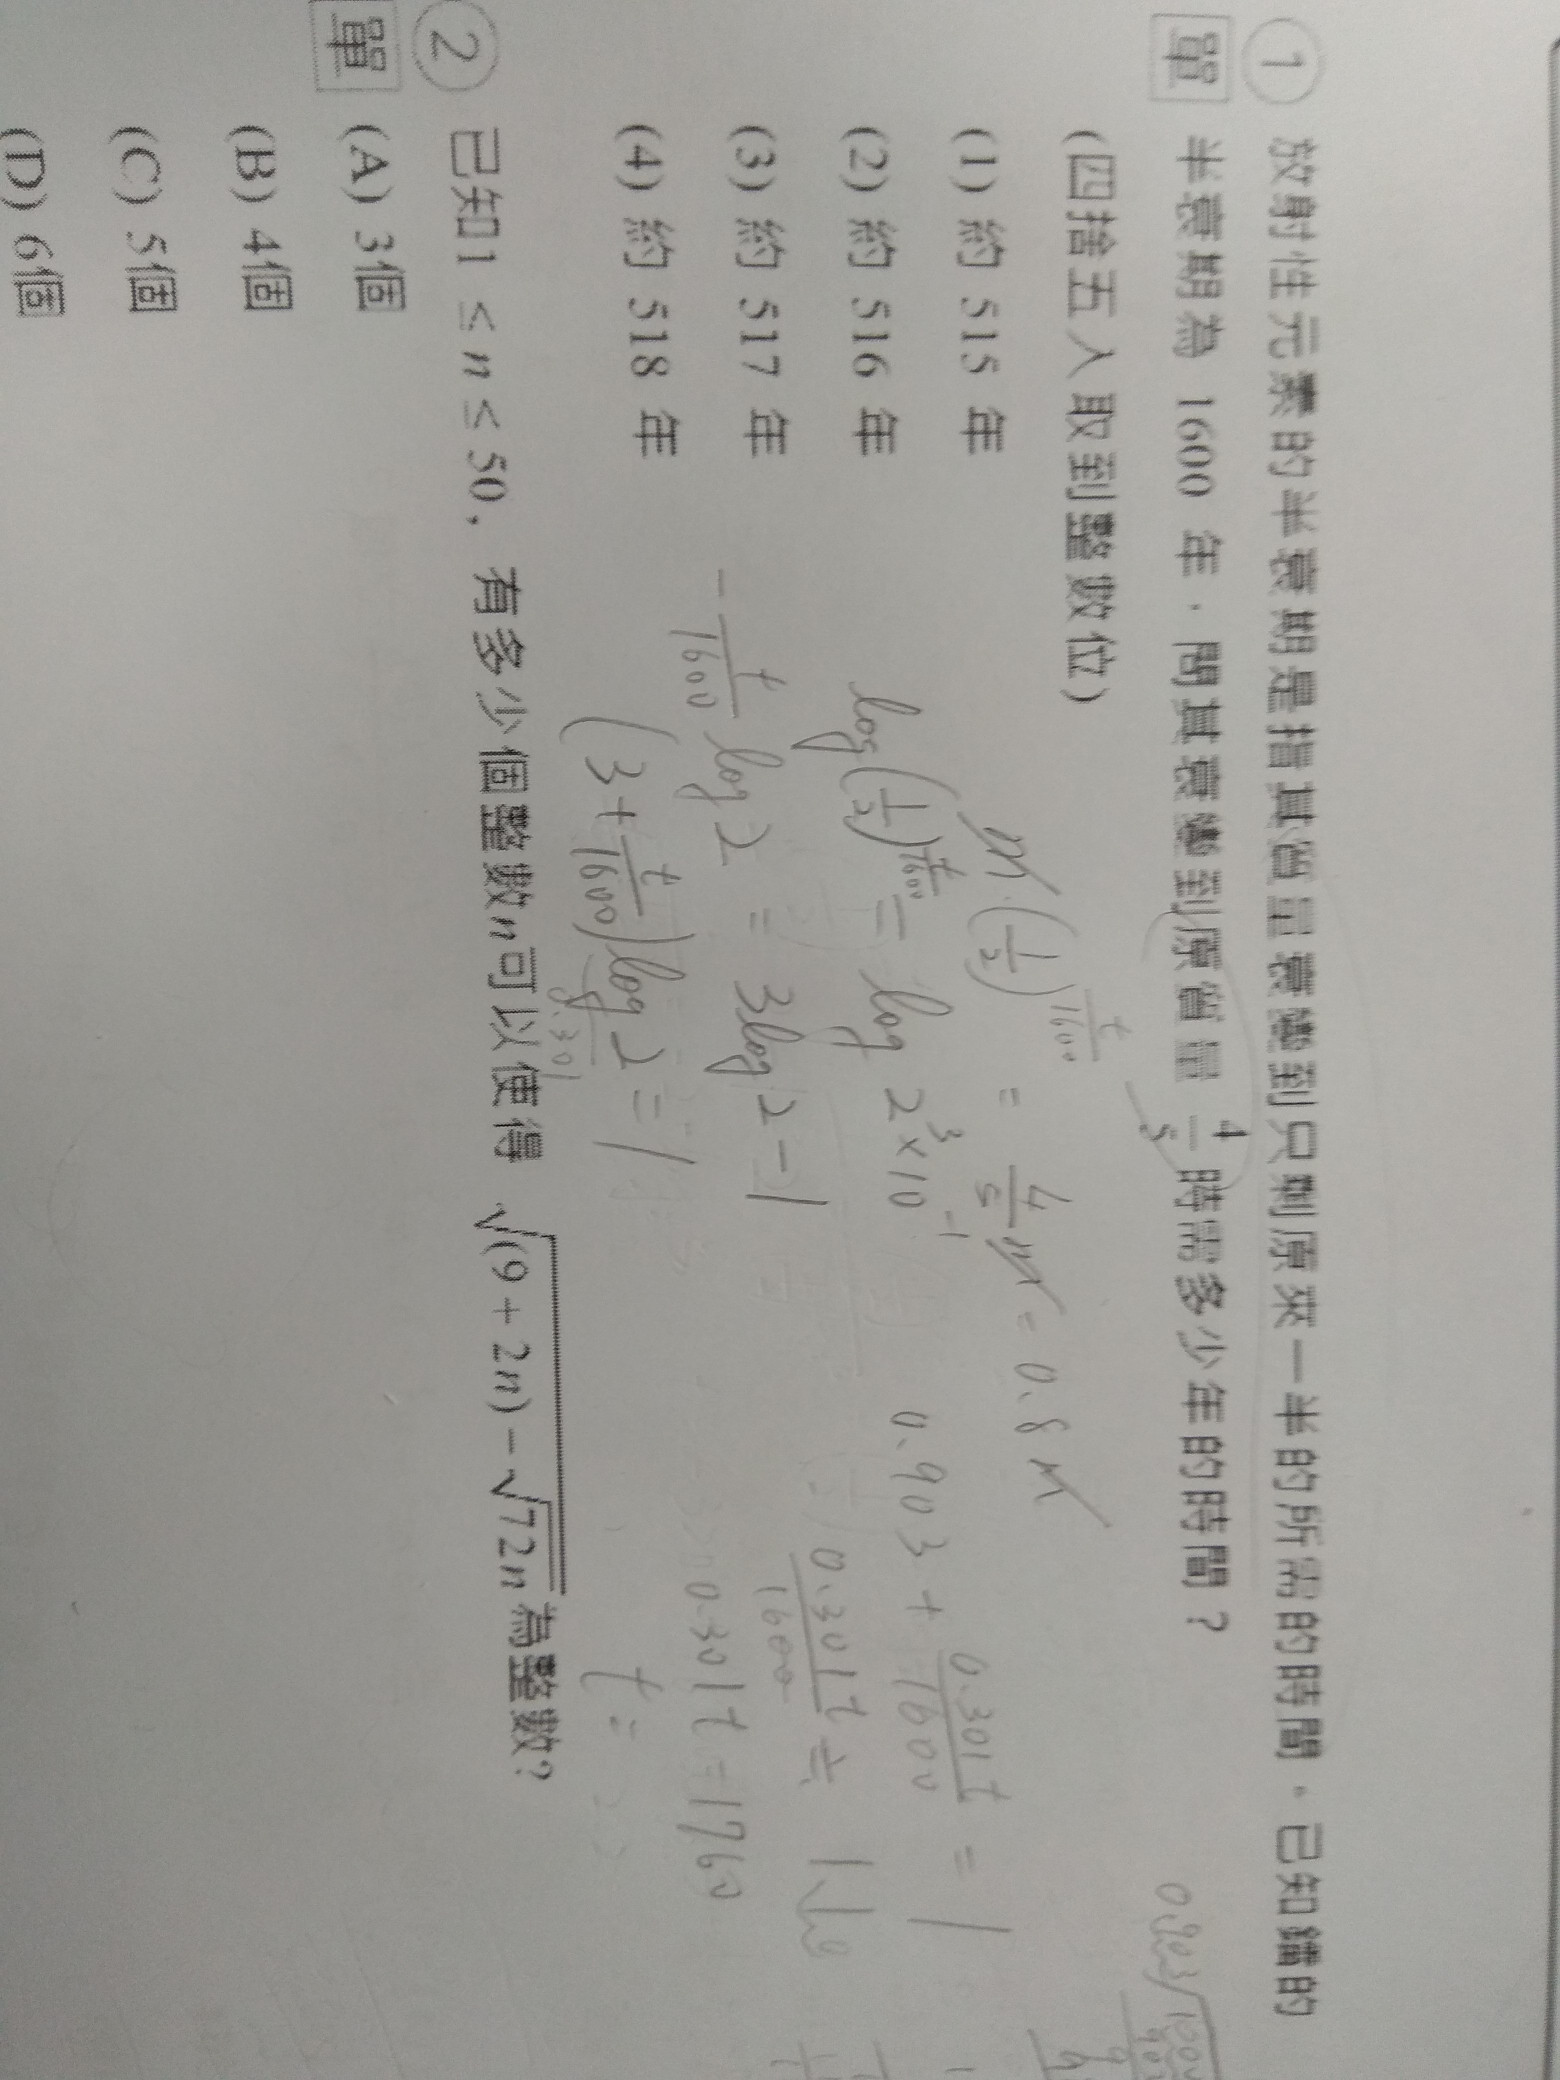 ① 放射性元素的半衰期是指其質量衰變到只剩原來一半的所需的時間。已知鐳的
單 半衰期為 1600 年，問其衰變到原質量 4/5 時需多少年的時間？
(四捨五入取到整數位)
(1) 約 515 年
(2) 約 516 年
(3) 約 517 年
(4) 約 518 年
(1/2)^(t/1600) = 4/5 = 0.8
log(1/2)^(t/1600) = log 2^3 × 10^-1
-t/1600 log 2 = 3log 2 - 1
(3 + t/1600) log 2 = 1
0.301
0.903 + 0.301t/1600 = 1
0.301t/1600
0.301t = 1760
t =
② 已知1 ≤ n ≤ 50，有多少個整數n可以使得 √((9 + 2n) - √72n) 為整數？
單 (A) 3個
(B) 4個
(C) 5個
(D) 6個